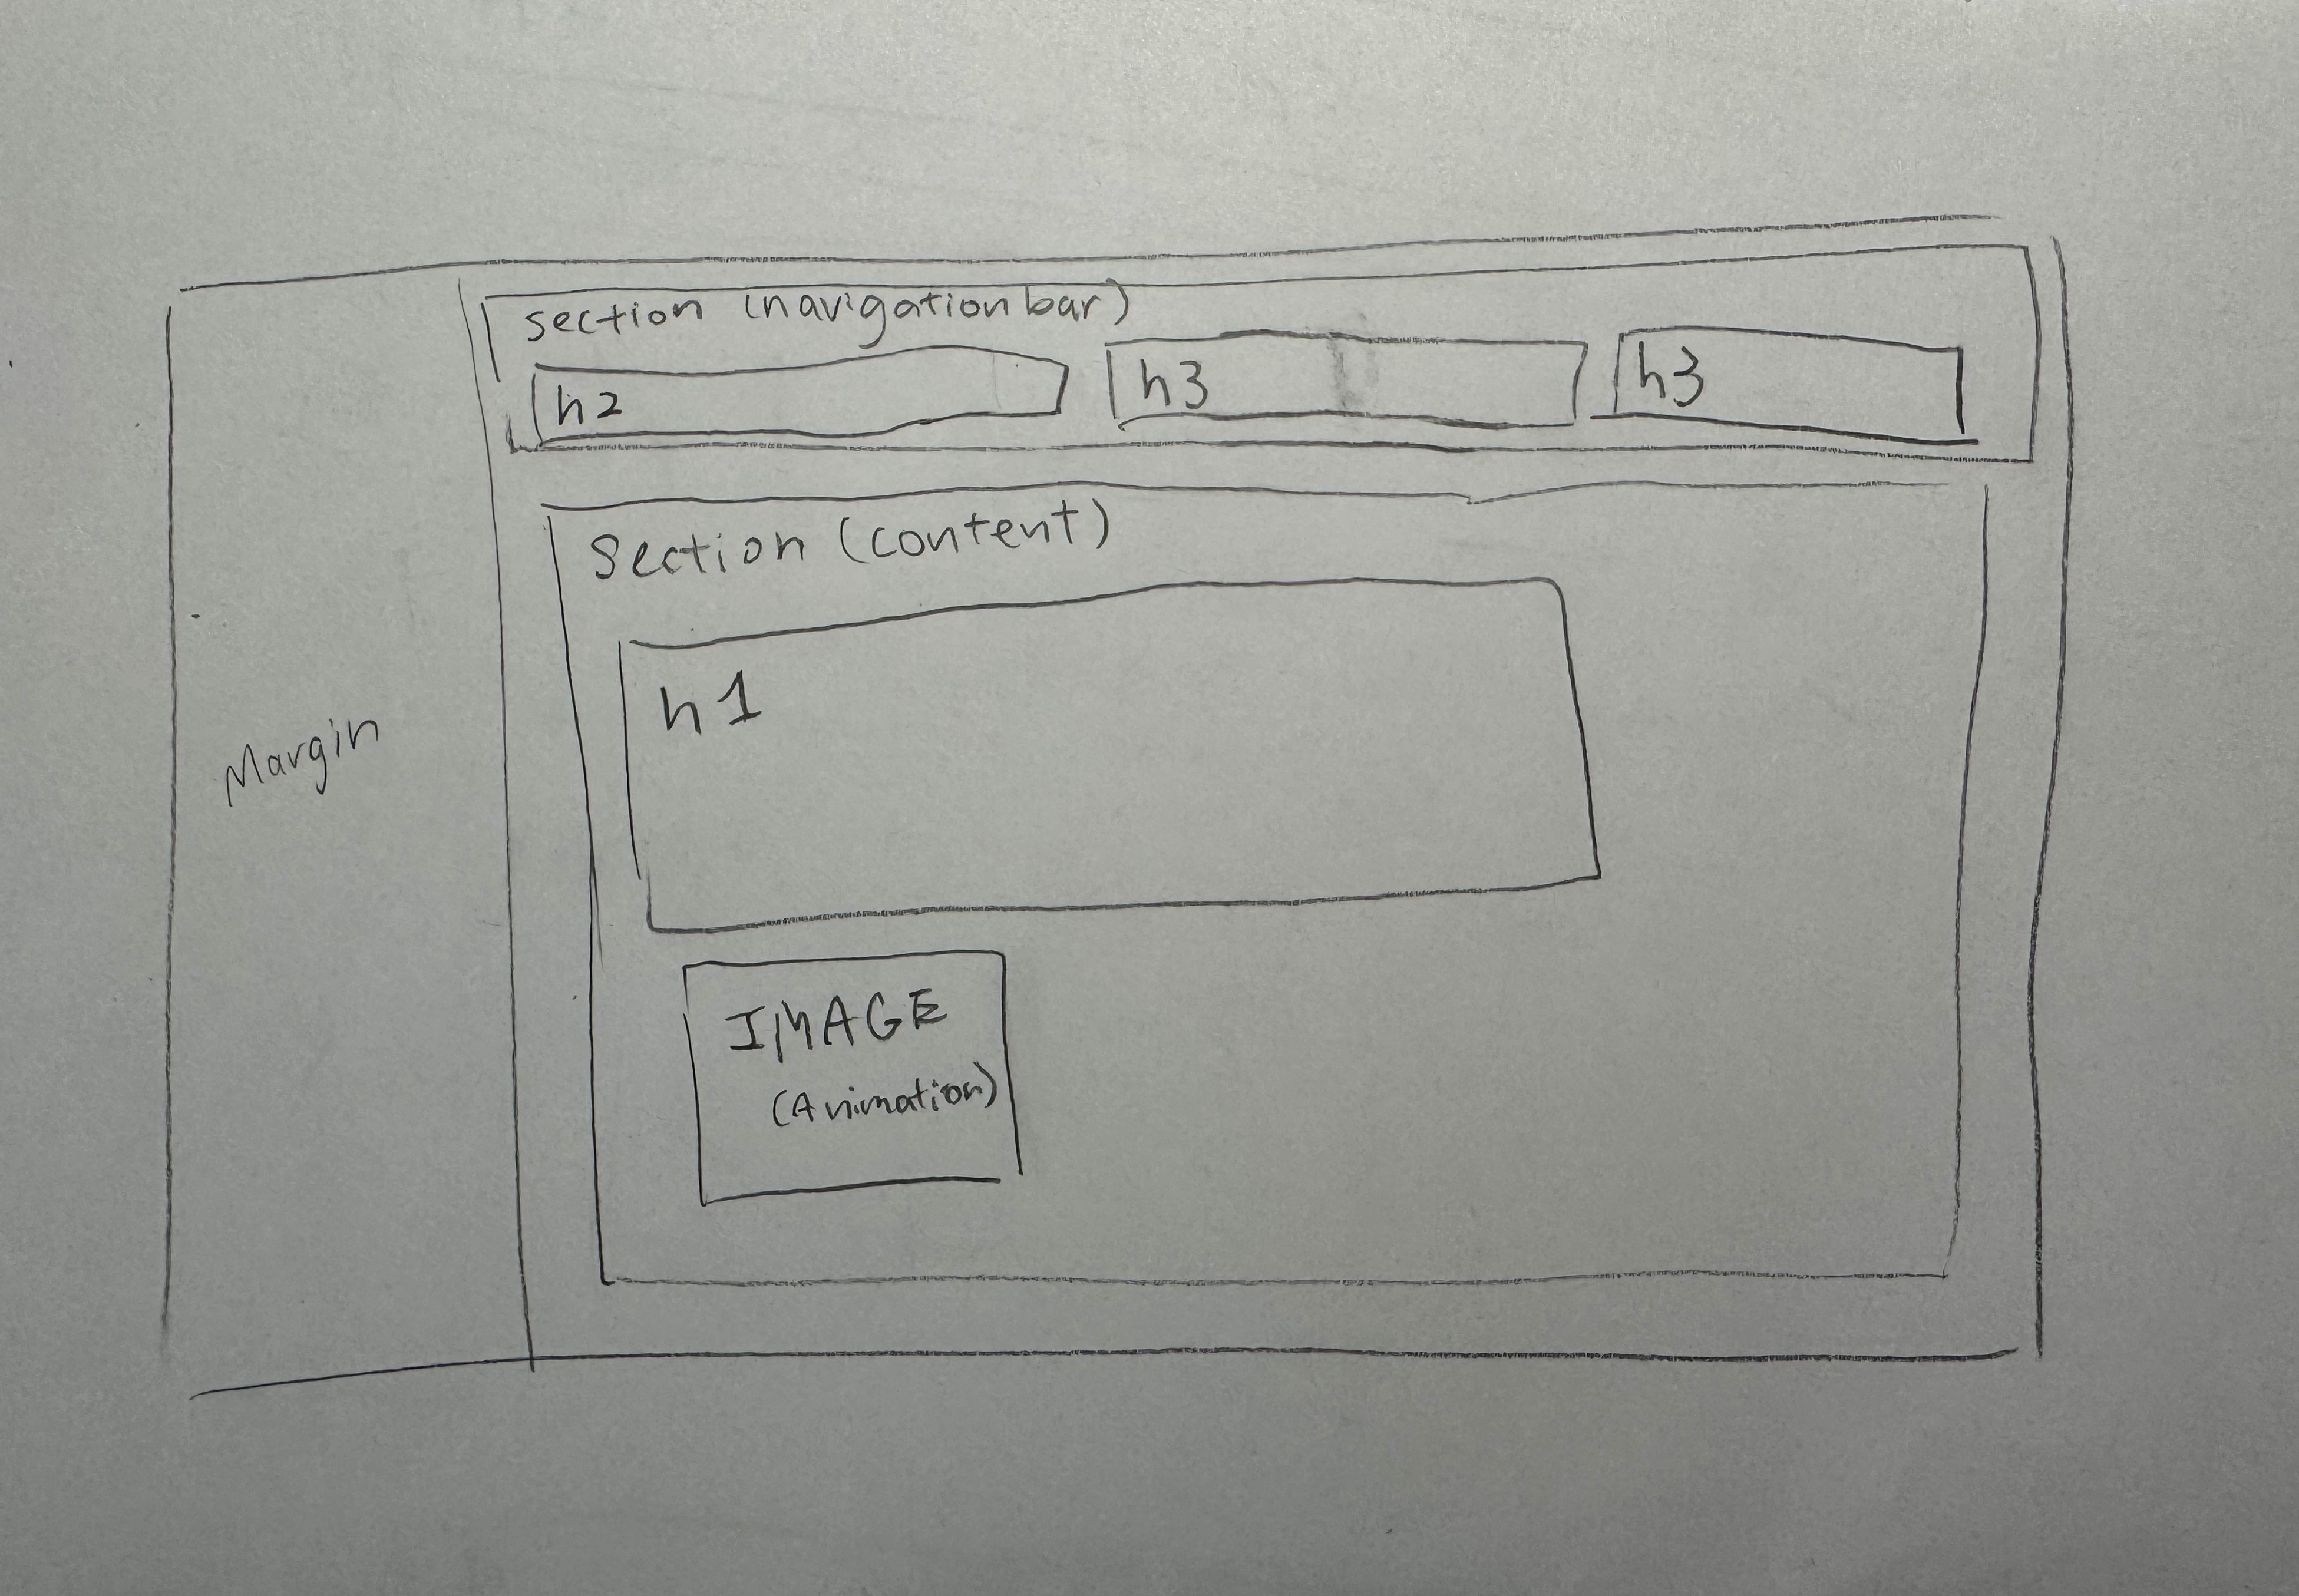 section (navigation bar)
h2
h3
h3
Section (content)
h1
Margin
IMAGE
(Animation)